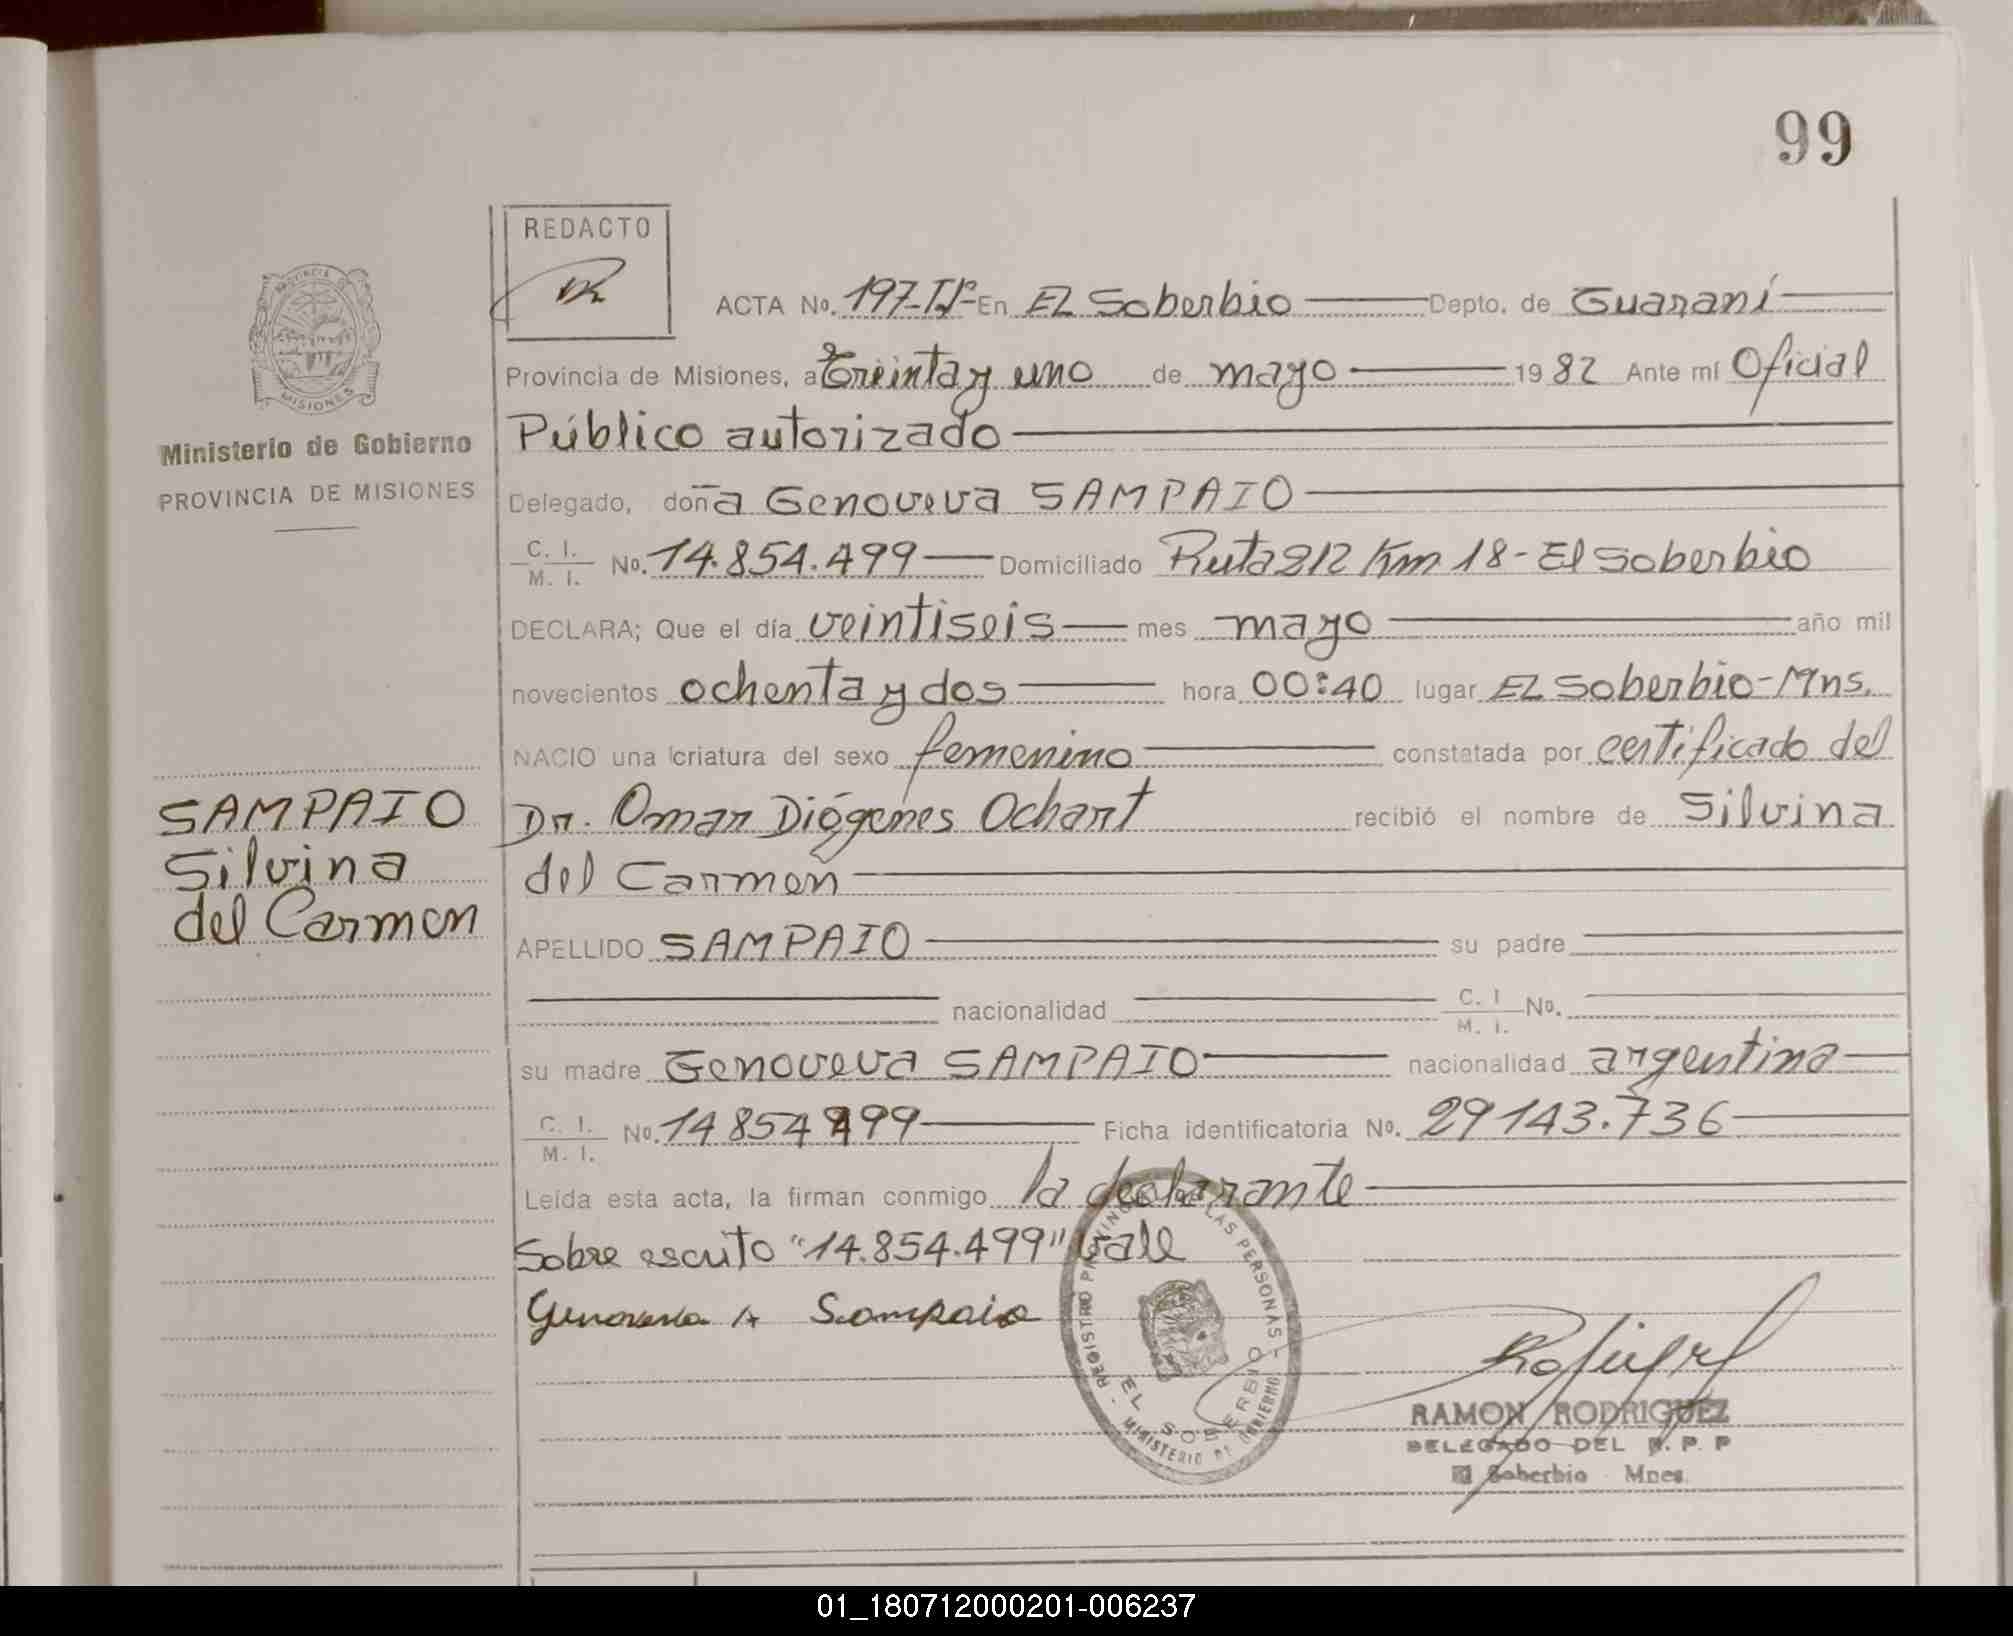 99
REDACTO
ACTA No. 197-Iº- En EL Soberbio Depto. de Guaraní
Provincia de Misiones, a treinta y uno de mayo 1982 Ante mí Oficial
Público autorizado
Delegado, doña Genoveva SAMPAIO
C. I.
M. I. No. 14.854.499 Domiciliado Ruta 212 Km 18 - El Soberbio
DECLARA; Que el día veintiseis mes mayo año mil
novecientos ochenta y dos hora 00:40 lugar EL Soberbio - Mns.
NACIO una criatura del sexo femenino constatada por certificado del
Dr. Omar Diógenes Ochart recibió el nombre de Silvina
del Carmen
APELLIDO SAMPAIO su padre
nacionalidad C. I
M. I. No.
su madre Genoveva SAMPAIO nacionalidad argentina
C. I.
M. I. No. 14854499 Ficha identificatoria No. 29143.736
Leída esta acta, la firman conmigo la declarante
Sobre escrito "14.854.499" Vale
Genoveva A Sampaio
PROVINCIA DE MISIONES
Ministerio de Gobierno
PROVINCIA DE MISIONES
SAMPAIO
Silvina
del Carmen
REGISTRO PROVINCIAL DE LAS PERSONAS - MINISTERIO DE GOBIERNO -
EL SOBERBIO
RAMON RODRIGUEZ
DELEGADO DEL R. P. P
El Soberbio Mnes.
01_180712000201-006237